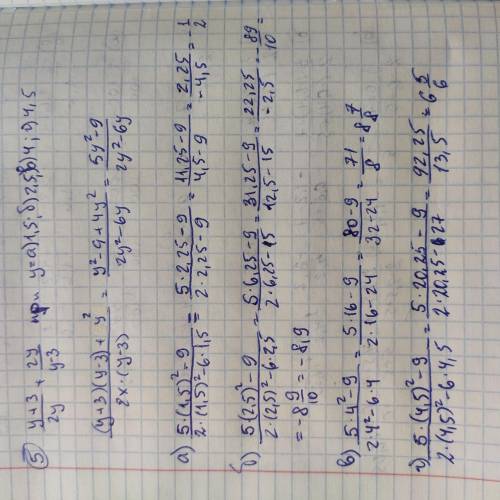 ⑤ (y+3)/2y + 2y/(y-3) при y=а)1,5; б)2,5; в)4; г)4,5
((y+3)(y-3)+y²)/(2x·(y-3)) = (y²-9+4y²)/(2y²-6y) = (5y²-9)/(2y²-6y)
а) (5·(1,5)²-9)/(2·(1,5)²-6·1,5) = (5·2,25-9)/(2·2,25-9) = (11,25-9)/(4,5-9) = 2,25/-4,5 = -1/2
б) (5(2,5)²-9)/(2·(2,5)²-6·2,5) = (5·6,25-9)/(2·6,25-15) = (31,25-9)/(12,5-15) = 22,25/-2,5 = -89/10 =
= -8 9/10 = -8,9
в) (5·4²-9)/(2·4²-6·4) = (5·16-9)/(2·16-24) = (80-9)/(32-24) = 71/8 = 8 7/8
г) (5·(4,5)²-9)/(2·(4,5)²-6·4,5) = (5·20,25-9)/(2·20,25-27) = 92,25/13,5 = 6 5/6